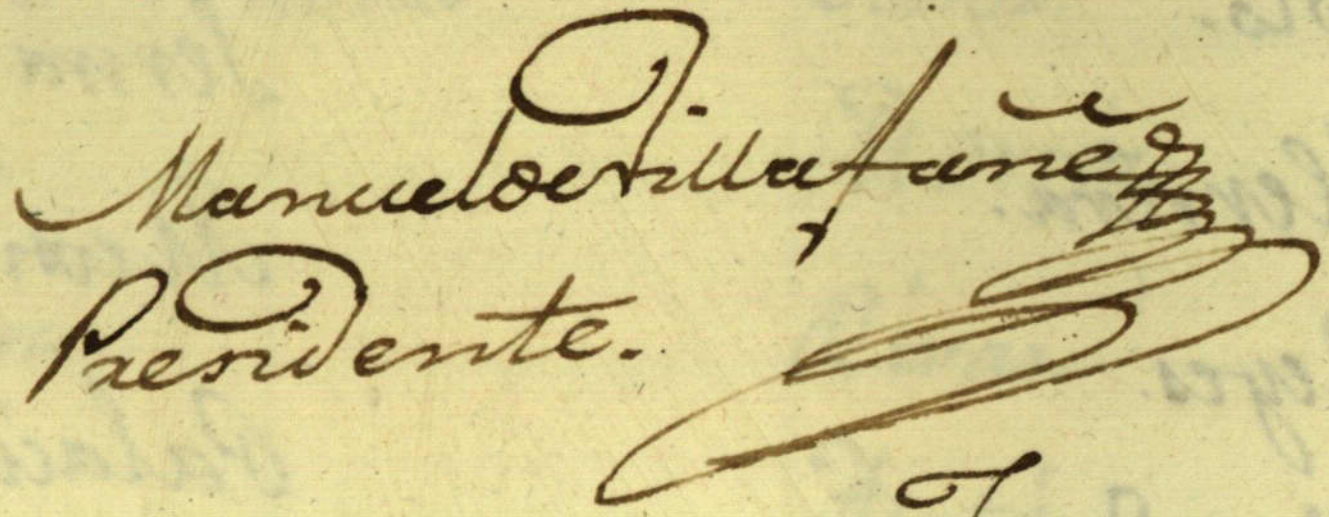 Manuel de Villafañe
Presidente.